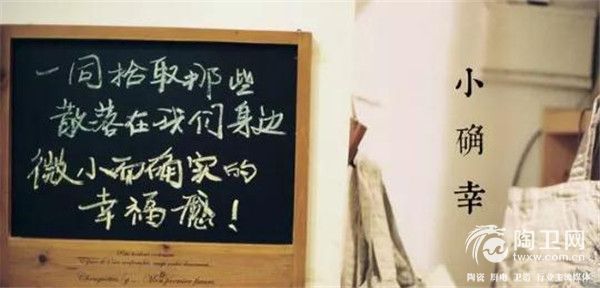 一同拾取那些
散落在我们身边
微小而确实的
幸福感！
小确幸
陶卫网
www.twxw.com
陶瓷 厨电 卫浴 行业主流媒体